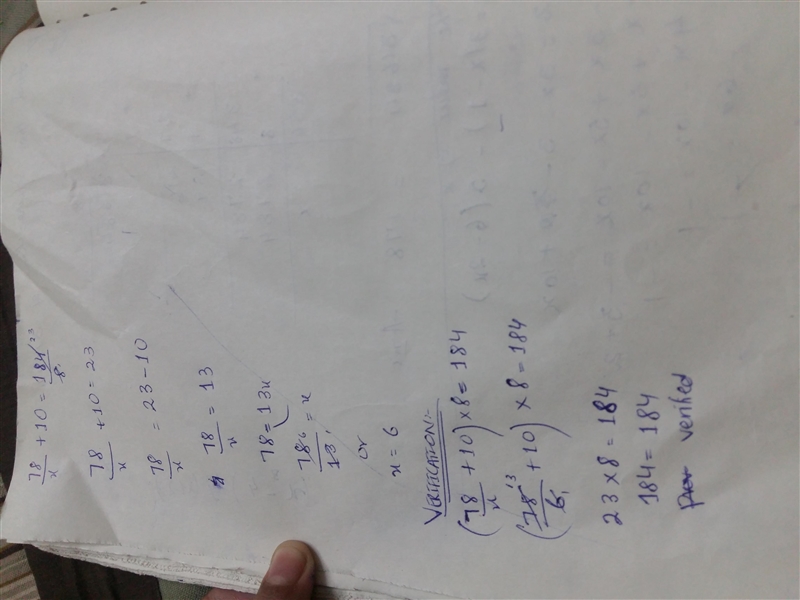 78/x + 10 = 184/8 23 1
78/x + 10 = 23
78/x = 23 - 10
78/x = 13
78 = 13x
78/13 = x 6 1
or
x = 6
VERIFICATION:-
(78/x + 10) × 8 = 184
(78/6 + 10) × 8 = 184 13 1
23 × 8 = 184
184 = 184
verified